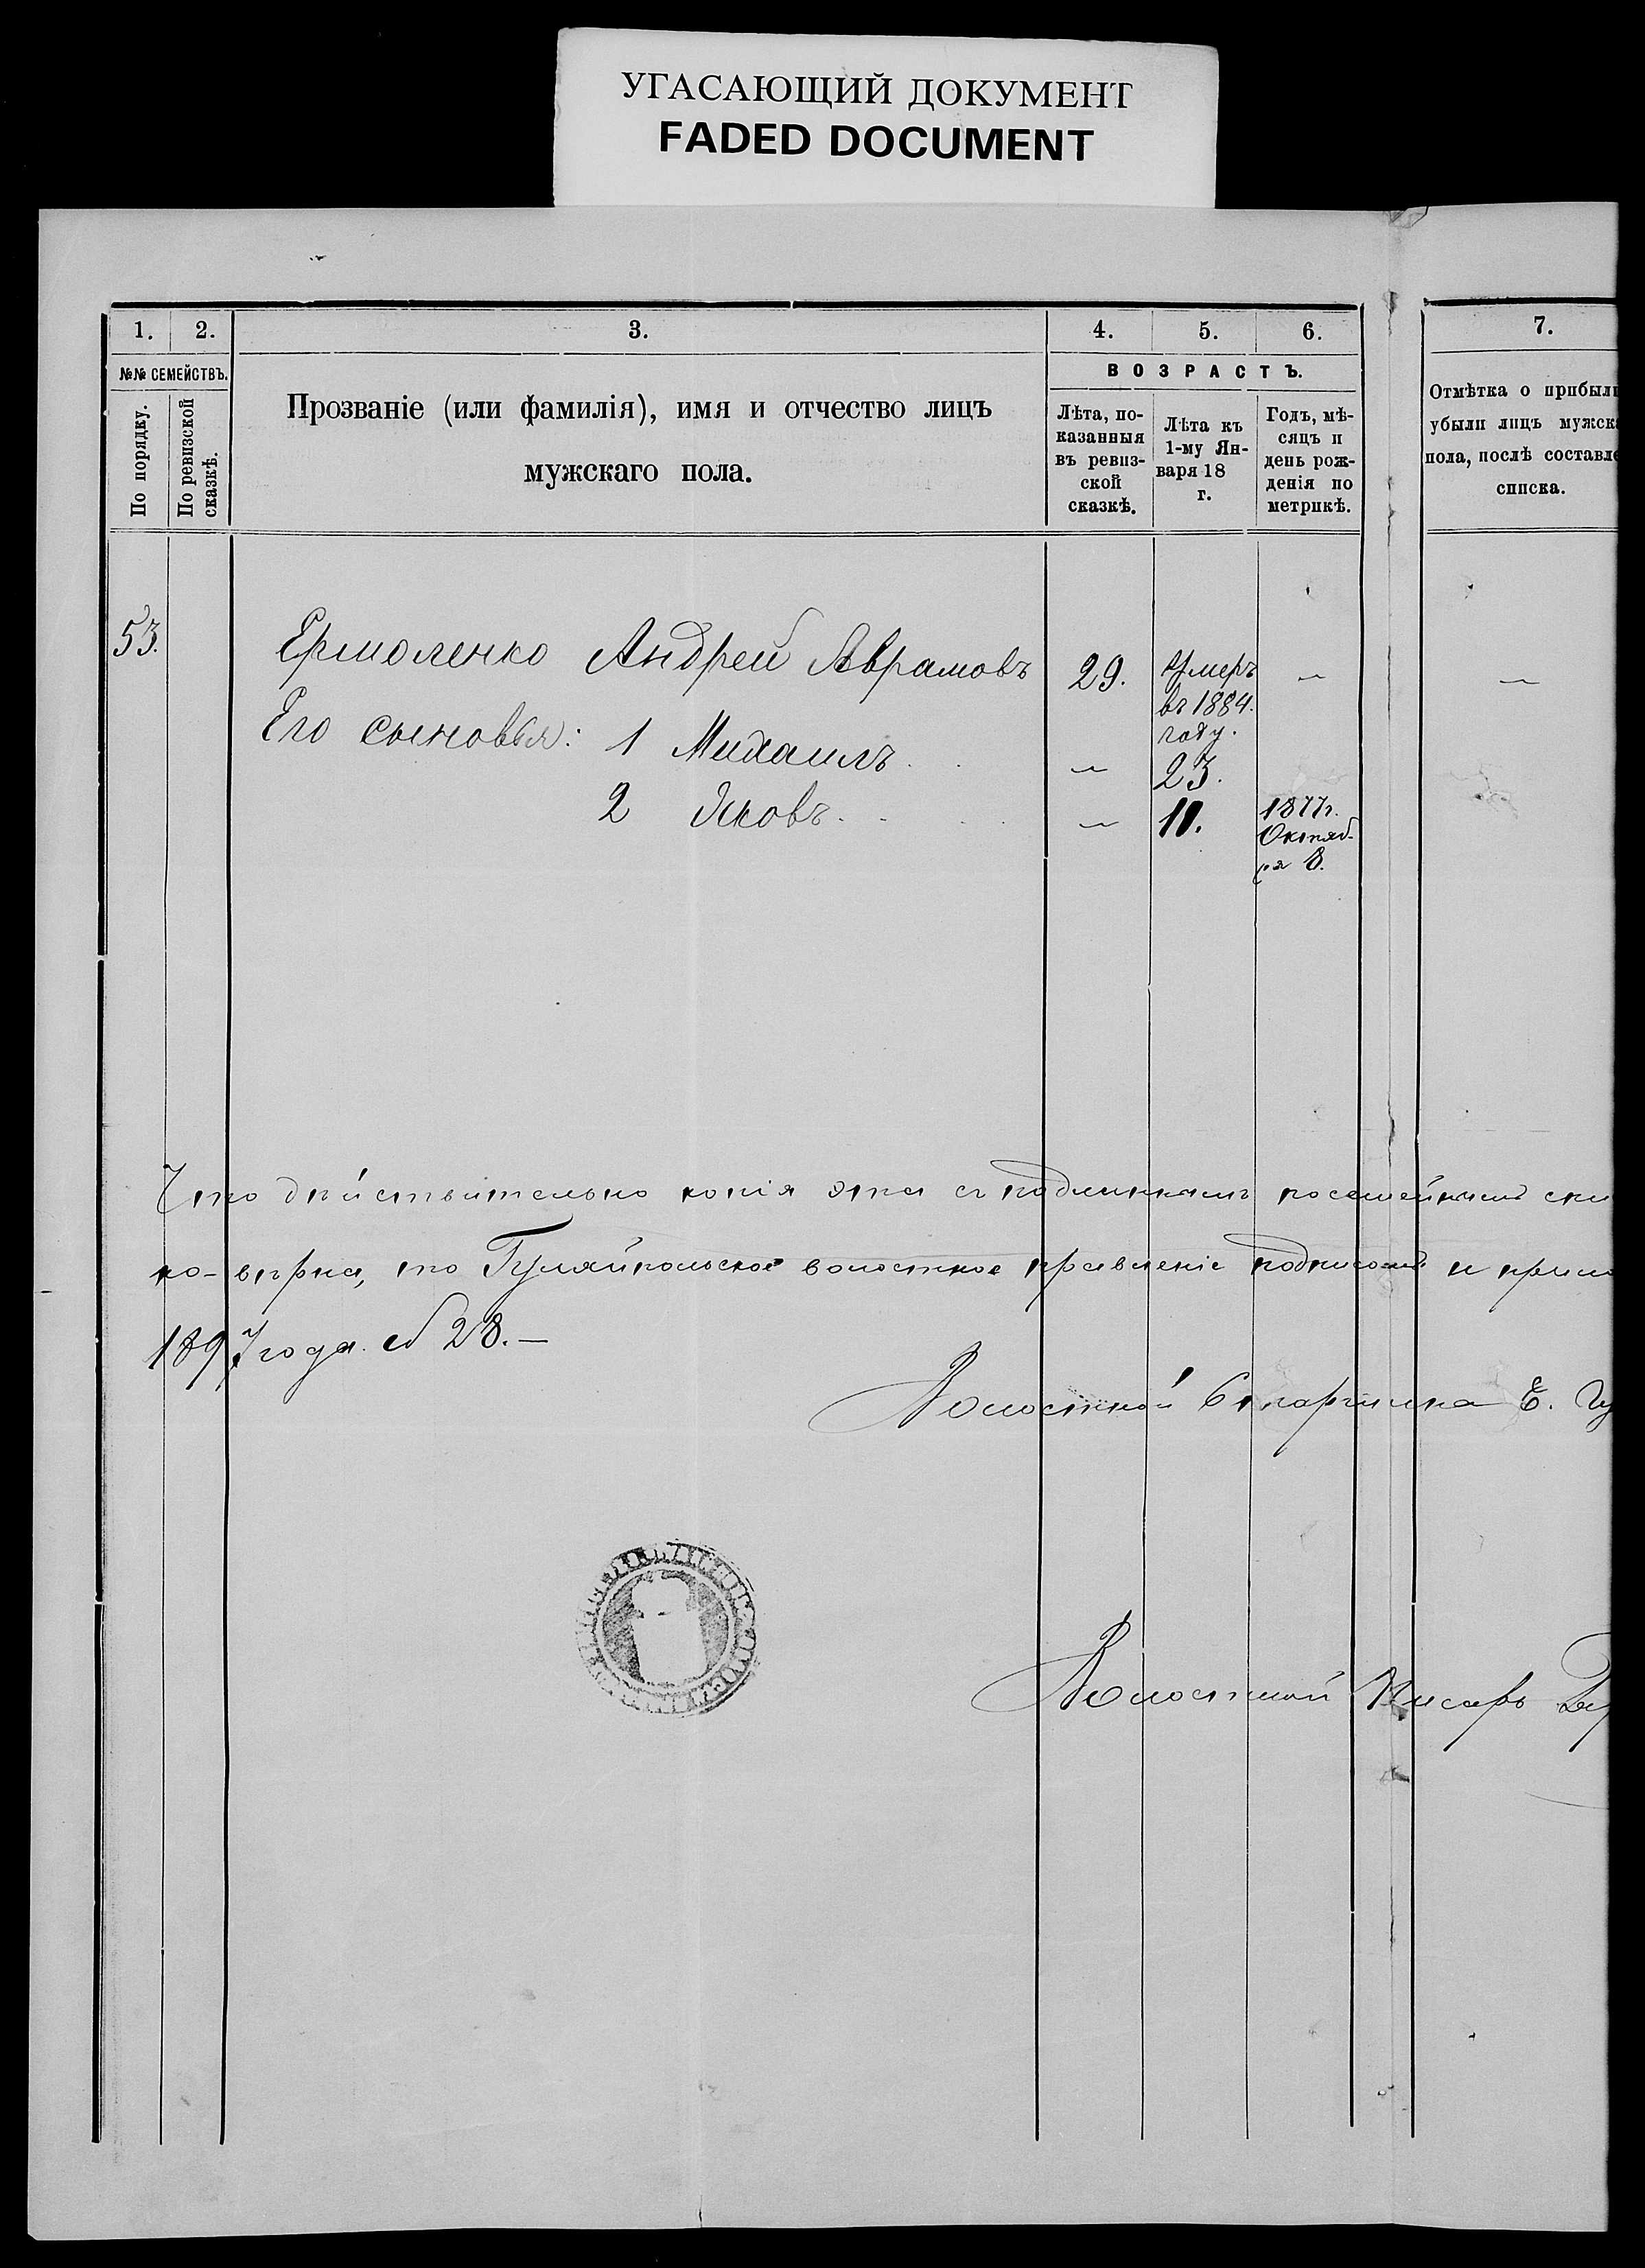 УГАСАЮЩИЙ ДОКУМЕНТ
FADED DOCUMENT
1. 2. 3. 4. 5. 6. 7.
№№ СЕМЕЙСТВЪ.
По порядку.
По ревизской сказкѣ.
Прозваніе (или фамилія), имя и отчество лицъ
мужскаго пола.
ВОЗРАСТЪ.
Лѣта, по-
казанныя
въ ревиз-
ской
сказкѣ.
Лѣта къ
1-му Ян-
варя 18
г.
Годъ, мѣ-
сяцъ и
день рож-
денія по
метрикѣ.
Отмѣтка о прибыли
убыли лицъ мужска
пола, послѣ составле
списка.
53. Ермоленко Андрей Аврамовъ 29. Умеръ — —
въ 1884.
году.
Его сыновья: 1 Михаилъ . . — 23.
2 Яковъ . . . . — 10. 1877г.
Октяб-
ря 8.
Что дѣйствительно копія эта съ подлиннымъ посемейнымъ спи
ко- вѣрна, то Гуляйпольское волостное правленіе подписомъ и прило
1897 года. № 28. —
Волостной Старшина Е.
Волостной Писарь